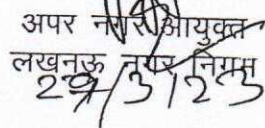 अपर नगर आयुक्त
लखनऊ नगर निगम
29/3/23